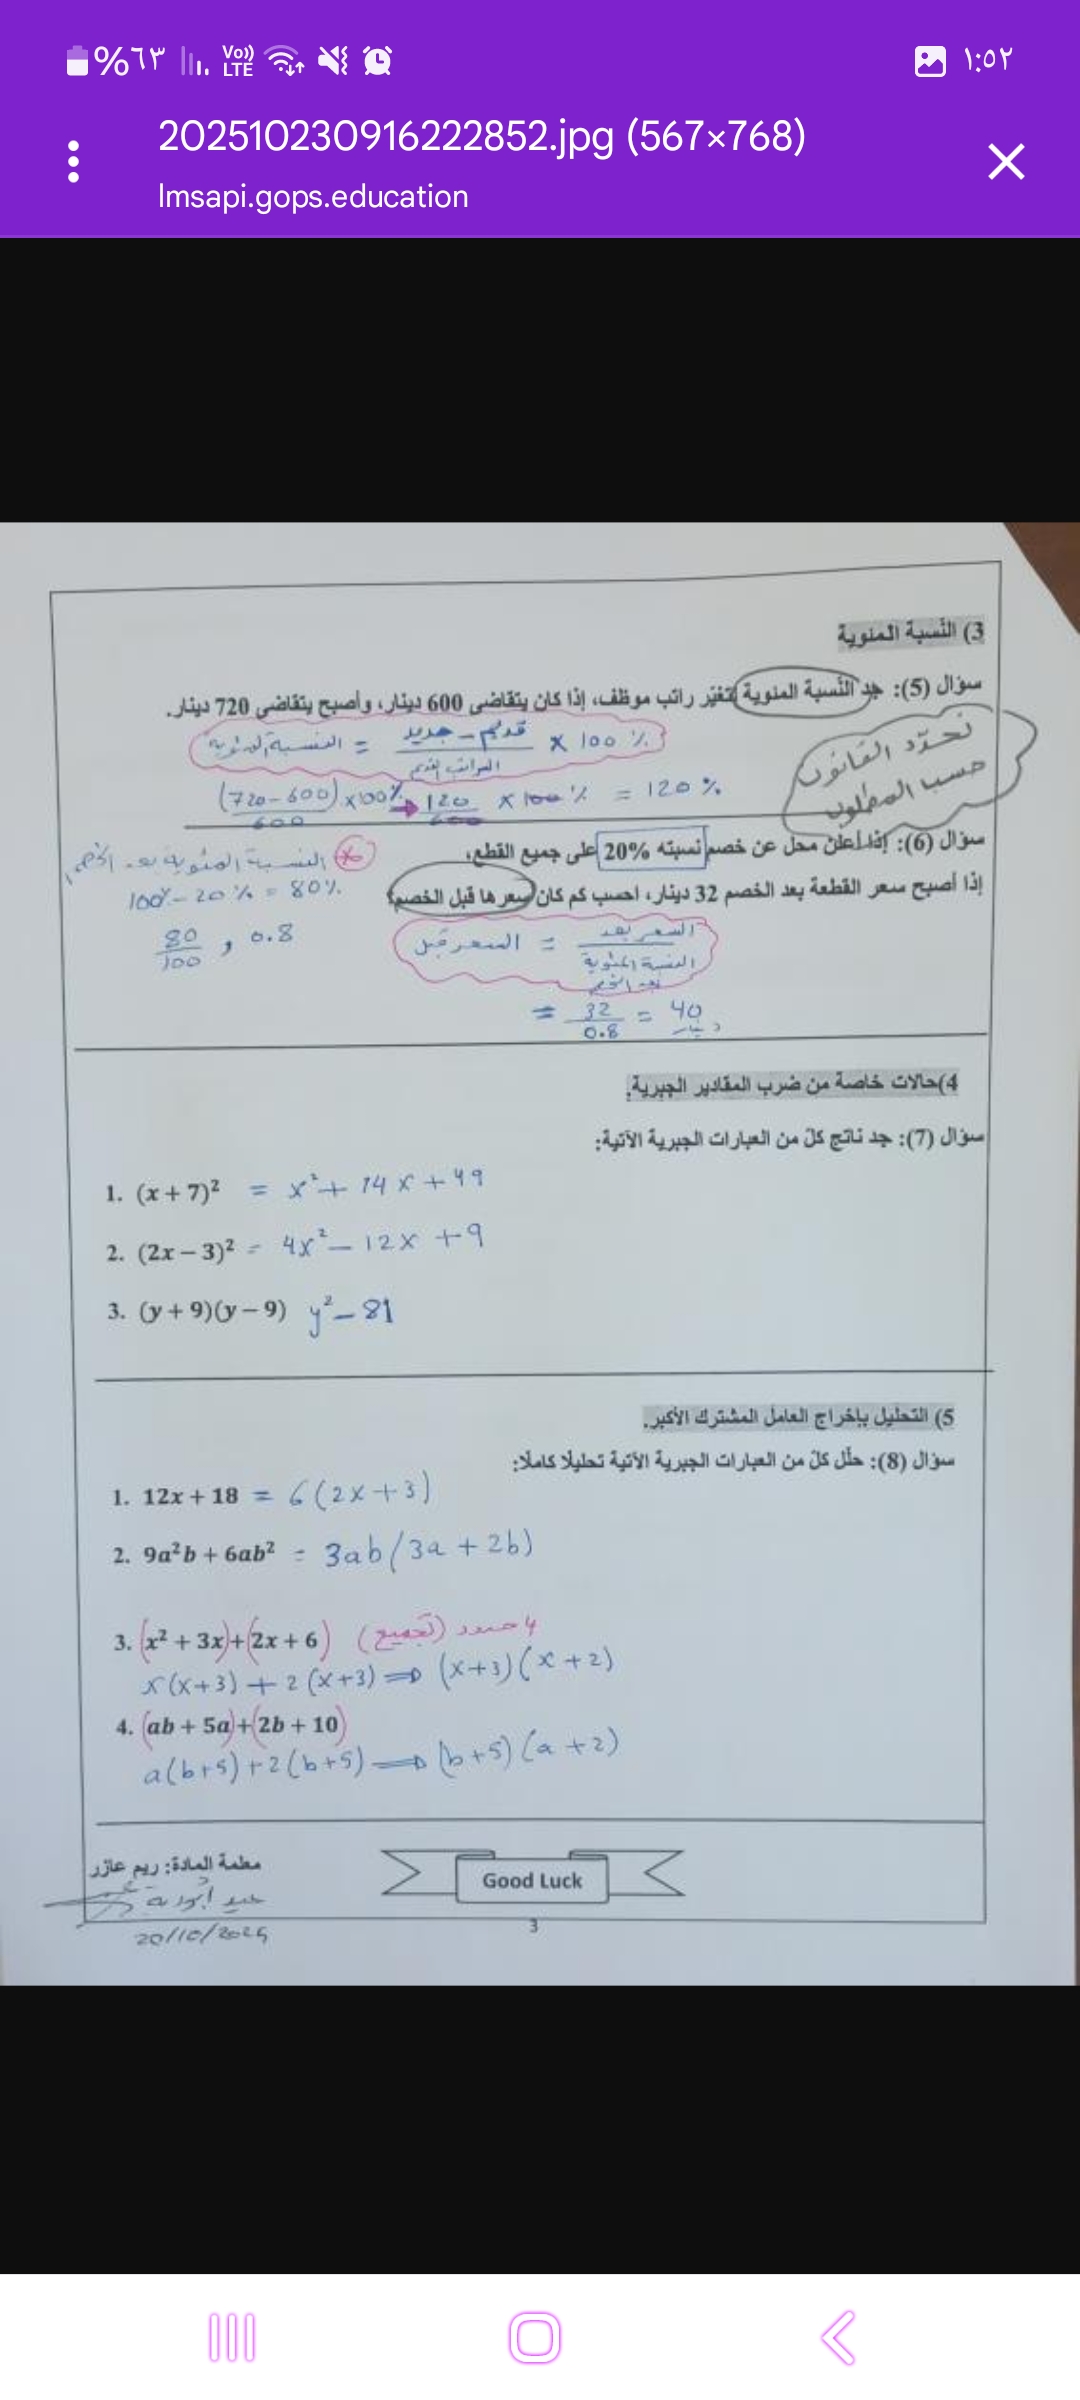 %٦٣ Vo)) LTE ١:٥٢
202510230916222852.jpg (567×768)
lmsapi.gops.education
3) النّسبة المئوية
سؤال (5): جد النّسبة المئوية لتغيّر راتب موظف، إذا كان يتقاضى 600 دينار، وأصبح يتقاضى 720 دينار.
النسبة المئوية = جديد - قديم / الراتب القديم × 100 %
نحدّد القانون
حسب المطلوب
(720-600) / 600 ×100% 120 / 600 × 100 % = 120 %
سؤال (6): إذا أعلن محل عن خصم نسبته 20% على جميع القطع،
النسبة المئوية بعد الخصم
إذا أصبح سعر القطعة بعد الخصم 32 دينار، احسب كم كان سعرها قبل الخصم؟
100% - 20% = 80%
80/100 , 0.8
السعر قبل = السعر بعد / النسبة المئوية بعد الخصم
= 32/0.8 = 40 دينار
4) حالات خاصة من ضرب المقادير الجبرية.
سؤال (7): جد ناتج كلّ من العبارات الجبرية الآتية:
1. (x + 7)² = x² + 14x + 49
2. (2x – 3)² = 4x² – 12x + 9
3. (y + 9)(y – 9) y² – 81
5) التحليل بإخراج العامل المشترك الأكبر.
سؤال (8): حلّل كلّ من العبارات الجبرية الآتية تحليلًا كاملًا:
1. 12x + 18 = 6(2x+3)
2. 9a²b + 6ab² = 3ab(3a + 2b)
3. (x² + 3x)+(2x + 6) 4 حدود (تجميع)
x(x+3) + 2(x+3) ⇒ (x+3)(x+2)
4. (ab + 5a)+(2b + 10)
a(b+5)+2(b+5) ⇒ (b+5)(a+2)
معلمة المادة: ريم عازر
Good Luck
20/10/2025
3